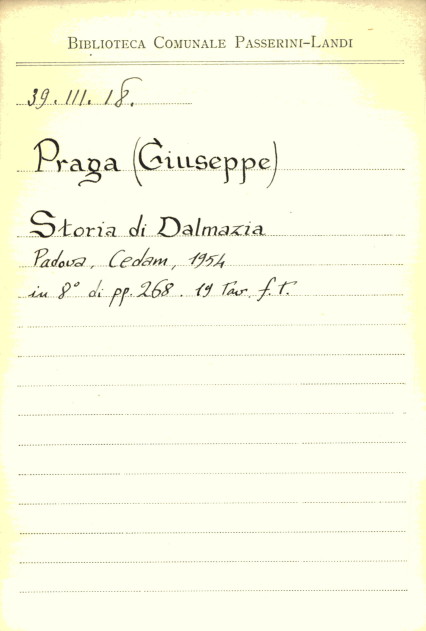 BIBLIOTECA COMUNALE PASSERINI-LANDI
39. III. 18.
Praga (Giuseppe)
Storia di Dalmazia
Padova, Cedam, 1954
in 8° di pp. 268. 19 Tav. f. t.